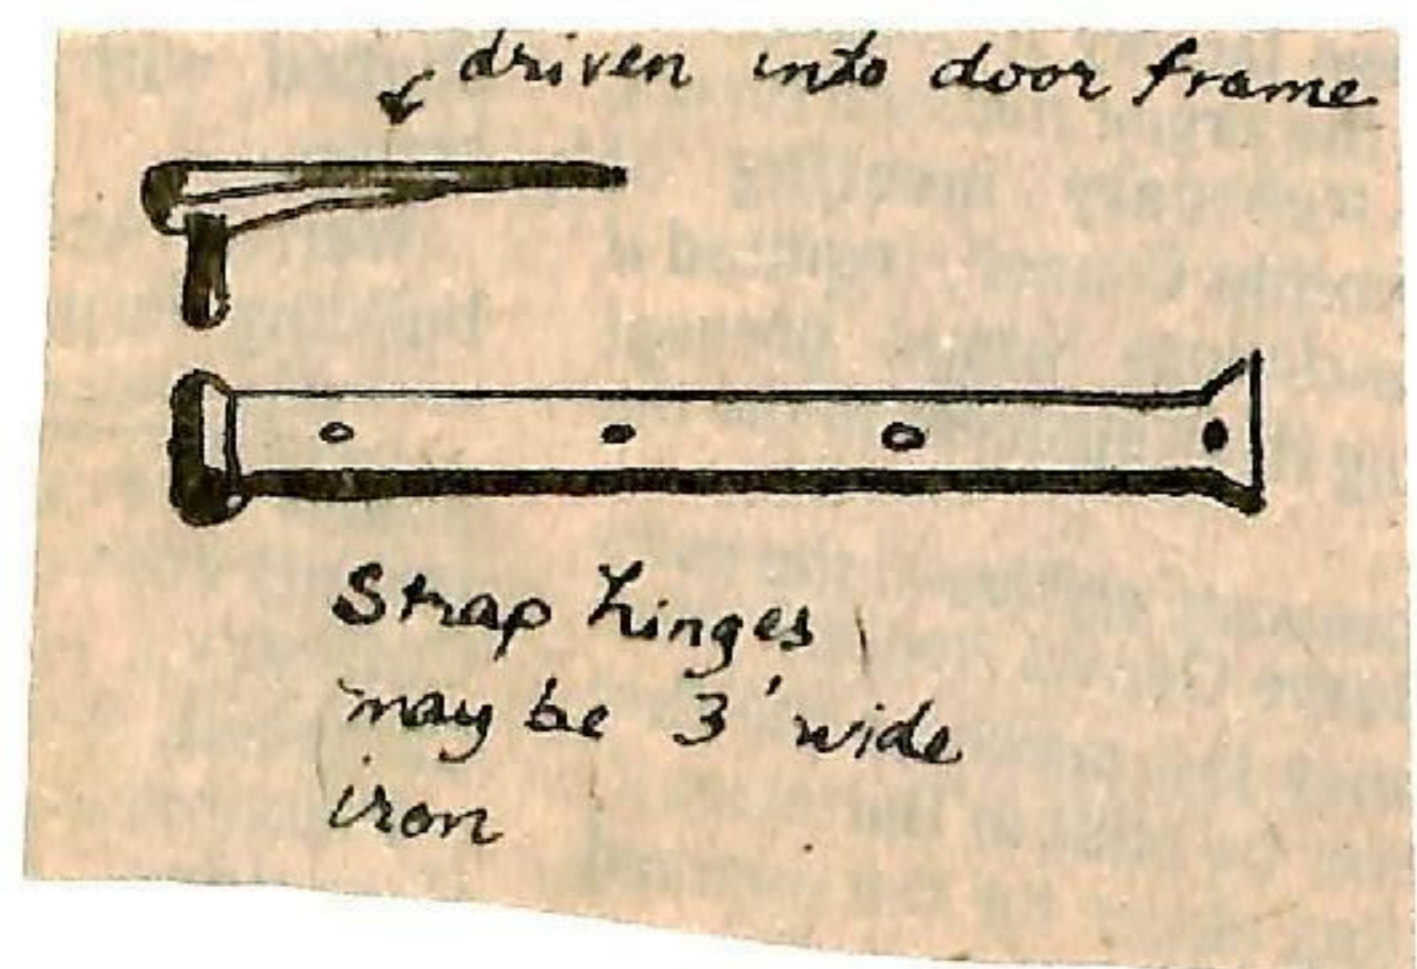 driven into door frame
Strap hinges
may be 3' wide
iron